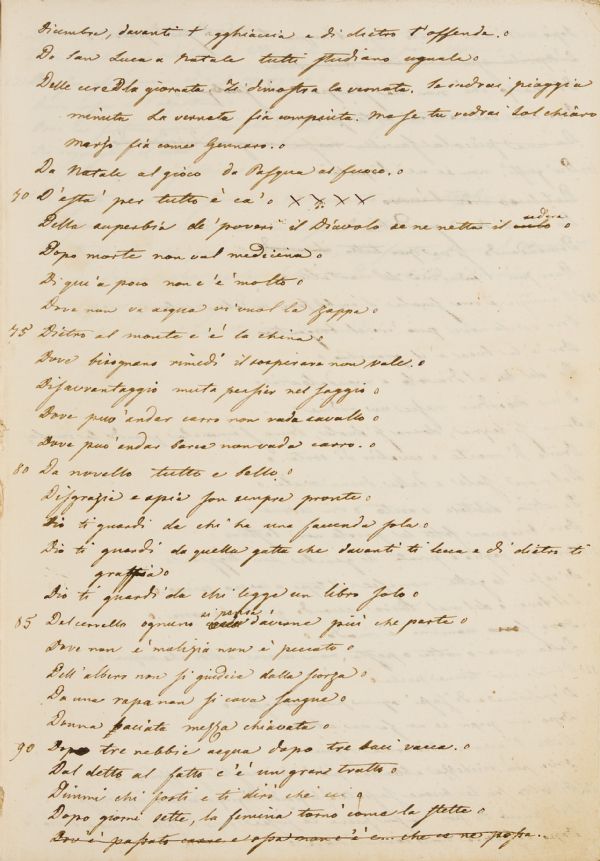 Dicembre, davanti t'agghiaccia e di dietro t'offende.
Da San Luca a Natale tutti studiano uguale
Delle cere la giornata. Ti dimostra la vernata. Se vedrai pioggia
minuta La vernata fia compiuta. Ma se tu vedrai sol chiaro
Marzo fia come Gennaro.
Da Natale al gioco da Pasqua al fuoco.
70 D'està per tutto è ca' XXXX
Della superbia de' poveri il Diavolo se ne netta il sedere
Dopo morte non val medicina
Di qui a poco non c'è molto
Dove non va acqua vi vuol la zappa
75 Dietro al monte c'è la china
Dove bisognano rimedi il sospirare non vale.
Disavvantaggio muta pensier nel saggio
Dove puo' andar carro non vada cavallo
Dove puó andar barca non vada carro.
80 Da novello tutto e bello
Disgrazie e spie son sempre pronte
Dio ti guardi da chi ha una facenda sola
Dio ti guardi da quella gatta che davanti ti lecca e di dietro ti
graffia
Dio ti guardi da chi legge un libro solo
85 Del cervello ognuno si pensa d'averne piú che parte
Dove non è malizia non è peccato
Dell'albero non si giudica dalla scorza
Da una rapa non si cava sangue
Donna baciata mezza chiavata
90 Dopo tre nebbie acqua dopo tre baci vacca.
Dal detto al fatto c'è un gran tratto
Dimmi chi forti e ti dirò chei
Dopo giorni sette, la femina tornó come la stette
Dov è passato e che ne passa.